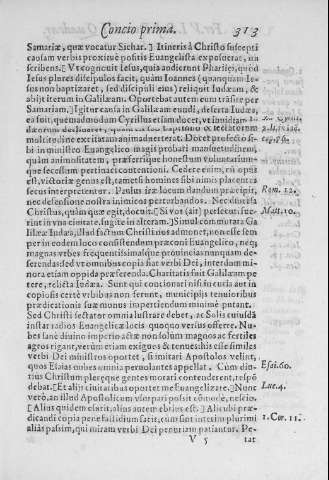 Concio prima. 313
Samariæ, quæ vocatur Sichar. ] Itineris à Christo suscepti
causam verbis proximè positis Euangelista exposuerat, in
scribens. [ V cognouit Iesus, quia audierunt Pharisęi, quòd
Iesus plures discipulos facit, quàm Ioannes ( quanquam Ie-
sus non baptizaret, sed discipuli eius) reliquit Iudæam, &
abijt iterum in Galilæam. Oportebat autem eum trãsire per
Samariam.] Igitur causa in Galilæam eundi, deserta Iudæa,
ea fuit, quemadmodum Cyrillus etiam docet, vt inuidiam
multitudine excitatam animaduerterat. Docet profectò si-
bi in ministro Euangelico magis probari mansuetudinem,
quàm animositatem, præserrique honestum voluntarium-
que secessum pertinaci contentioni. Cedere enim, rũ opus
est, victoriæ genus est, tametsi homines sibi nimis placentes
secus interpretentur. Paulus iræ locum dandum præcipit,
nec defensione nostra inimicos perturbandos. Nec diuersa
Christus, quàm quæ egit, docuit. [ Si vos (ait) persecuti fue-
rint in vna ciuitate, fugite in alteram. ] Simul commutata Ga
lilæa Iudæa, illud factum Christi nos admonet, non esse sem
per in eodem loco consistendum præconi Euangelico, neq;
magnas vrbes frequentissimasque prouincias nunquam de-
serendas sed vt omnibus copia fiat verbi Dei, interdum mi-
nora etiam oppida præferenda. Charitatis fuit Galilæam pe
tere, relicta Iudæa. Sunt qui contionari nisi in curia aut in
copiosis certè vrbibus non ferunt, municipijs tenuioribus
prædicationis suæ munus impertiendum minimè putant.
Sed Christi sectator omnia lustrare debet, ac Solis cuiusdã
instar radios Euangelicæ locis quoque versus offerre. Nu-
bes sanè diuino imperio actæ non solùm magnos ac fertiles
agros rigant, verùm etiam exiguos & tenues: his esse similes
verbi Dei ministros oportet, si imitari Apostolos velint,
quos Esaias nubes omnia peruolantes appellat. Cùm diu-
tius Christum pleręque gentes morari contenderent, respõ
debat. [ Et alijs ciuitatibus oportet me Euangelizare. ] Nunc
verò, an illud Apostolicum vsurpari possit cõmodè, nescio.
[ Alius quidem esurit, alius autem ebrius est. ] Alicubi præ-
dicandi copia penè fastidium facit, cùm sint interim plurimi
aliàs passim, qui miram verbi Dei penuriam patiantur. Pe-
V 5 tat
Rom. 12.
Matt. 10.
Esai. 60.
Luc. 4.
1. Cor. 11.